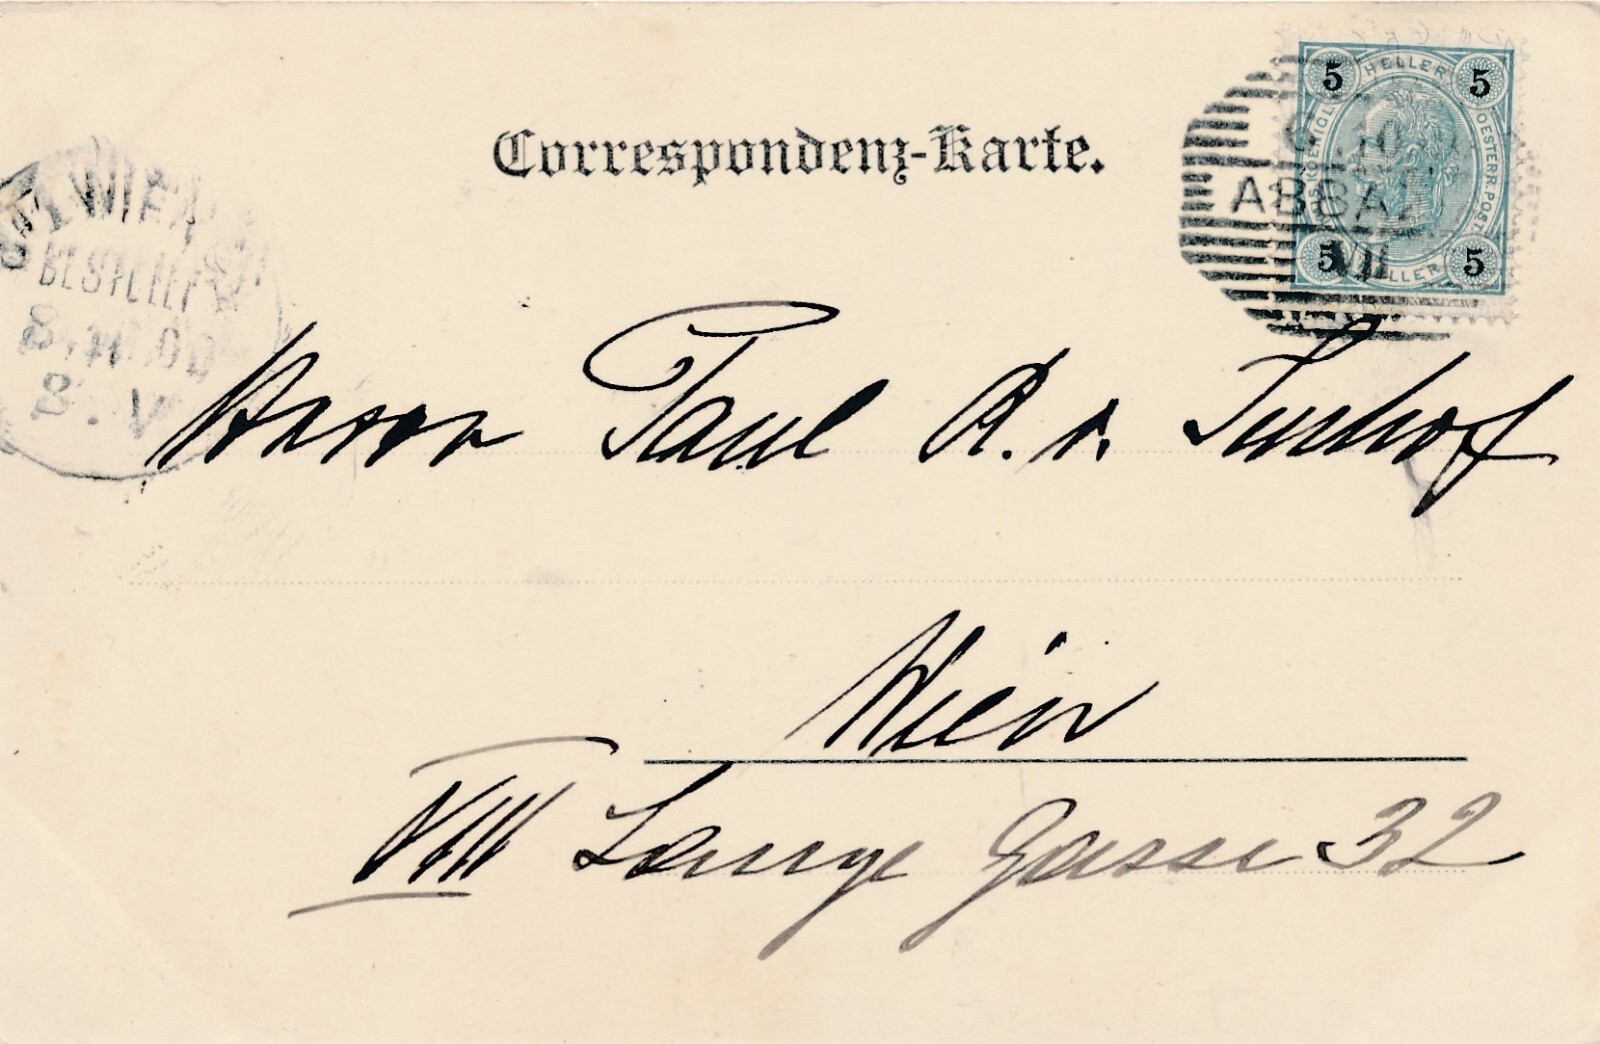 Correspondenz-Karte.
5 HELLER 5
OESTERR. POST
5 HELLER 5
ABBAZ
VII
WIEN
BESTELLT
8. 10. 00
8. V
Herrn Paul R. v.
Wien
VIII Lange Gasse 32